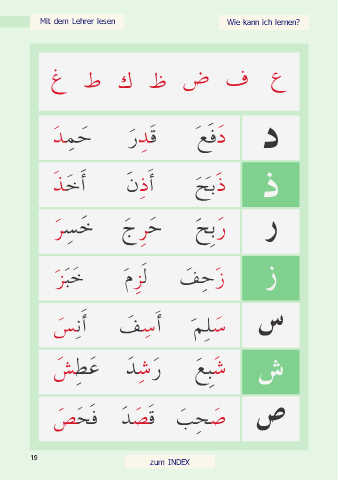 Mit dem Lehrer lesen
Wie kann ich lernen?
ع ف ض ظ ك ط غ
د دَفَعَ قَدِرَ حَمِدَ
ذ ذَبَحَ أَذِنَ أَخَذَ
ر رَبِحَ حَرِجَ خَسِرَ
ز زَحِفَ لَزِمَ خَبَزَ
س سَلِمَ أَسِفَ أَنِسَ
ش شَبِعَ رَشِدَ عَطِشَ
ص صَحِبَ قَصَدَ فَحَصَ
19
zum INDEX